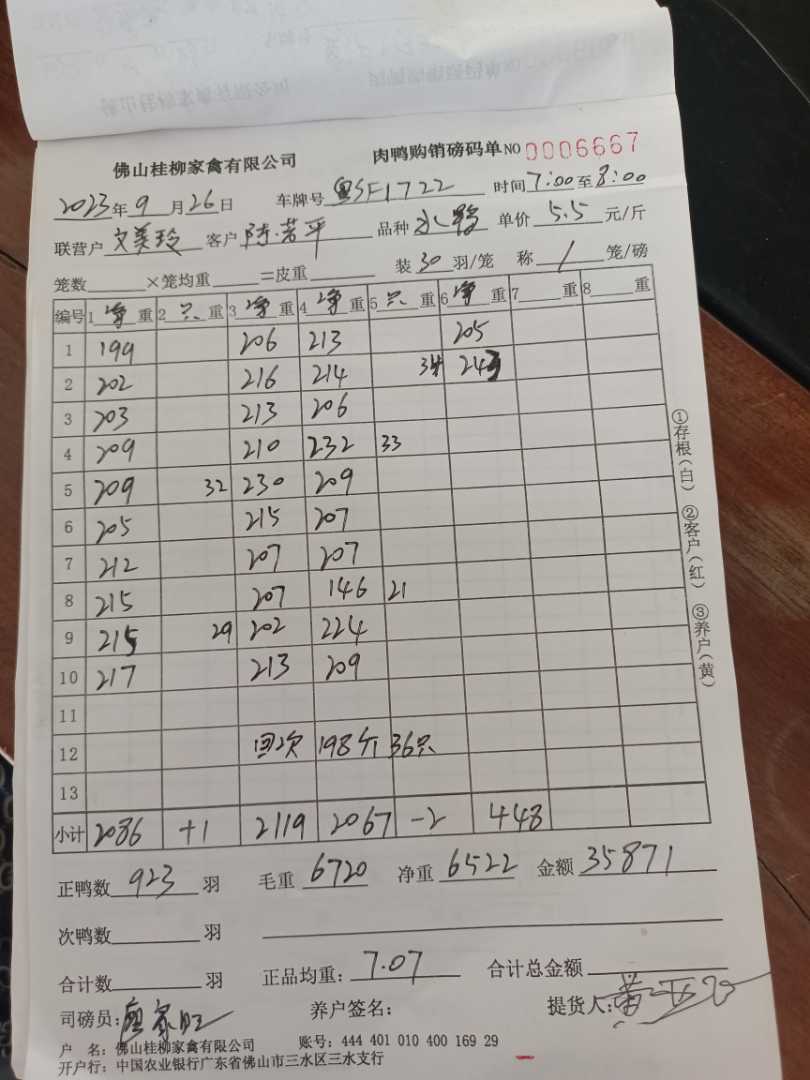 佛山桂柳家禽有限公司 肉鸭购销磅码单 NO 0006667
2023年9月26日 车牌号 粤SF1722 时间7:00至8:00
联营户 文美玲 客户 陈芳平 品种 水鸭 单价 5.5 元/斤
笼数 ×笼均重 =皮重 装 30 羽/笼 称 1 笼/磅
编号 1 净 重 2 只 重 3 净 重 4 净 重 5 只 重 6 净 重 7 重 8 重
1 199 206 213 205
2 202 216 214 34 243
3 203 213 206
4 209 210 232 33
5 209 32 230 209
6 205 215 207
7 212 207 207
8 215 207 146 21
9 215 29 202 224
10 217 213 209
11
12 回次 198斤 36只
13
小计 2086 +1 2119 2067 -2 448
正鸭数 923 羽 毛重 6720 净重 6522 金额 35871
次鸭数 羽
合计数 羽 正品均重: 7.07 合计总金额
司磅员: 养户签名: 提货人:
户 名: 佛山桂柳家禽有限公司 账号: 444 401 010 400 169 29
开户行: 中国农业银行广东省佛山市三水区三水支行
①存根(白) ②客户(红) ③养户(黄)